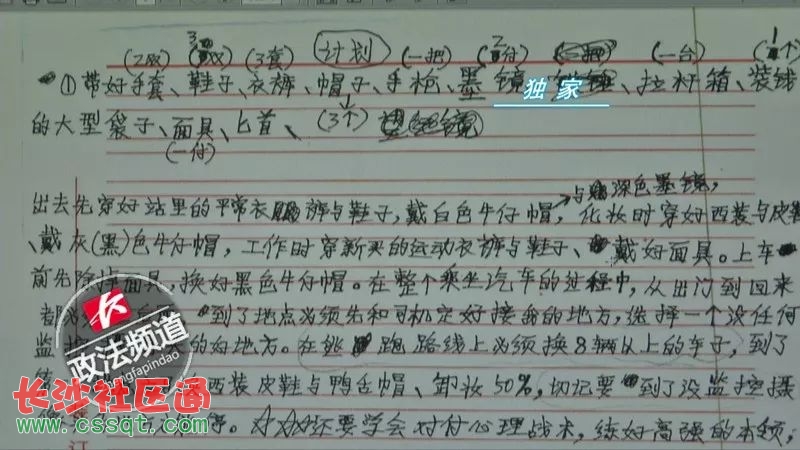 (2双) (双) (3套) (计划) (一把) (2付) (一台) (1个)
①带好手套、鞋子、衣裤、帽子、手枪、墨镜、拉杆箱、装钱
独家
的大型袋子、面具、匕首、(3个)
(一付)
与深色墨镜,
出去先穿好站里的平常衣裤与鞋子,戴白色牛仔帽,化妆时穿好西装与皮鞋
、戴灰(黑)色牛仔帽,工作时穿新买的运动衣裤与鞋子、戴好面具。上车
前先除掉面具,换好黑色牛仔帽。在整个乘坐汽车的过程中,从出门到回来
都 到了地点必须先和司机定好接我的地方,选择一个没任何
监 的好地方。在跑路线上必须换8辆以上的车子,到了
西装皮鞋与鸭舌帽、卸妆50%,切记要到了没监控摄
还要学会对付心理战术,练好高强的本领;
订
政法频道
zhengfapindao
长沙社区通
www.cssqt.com